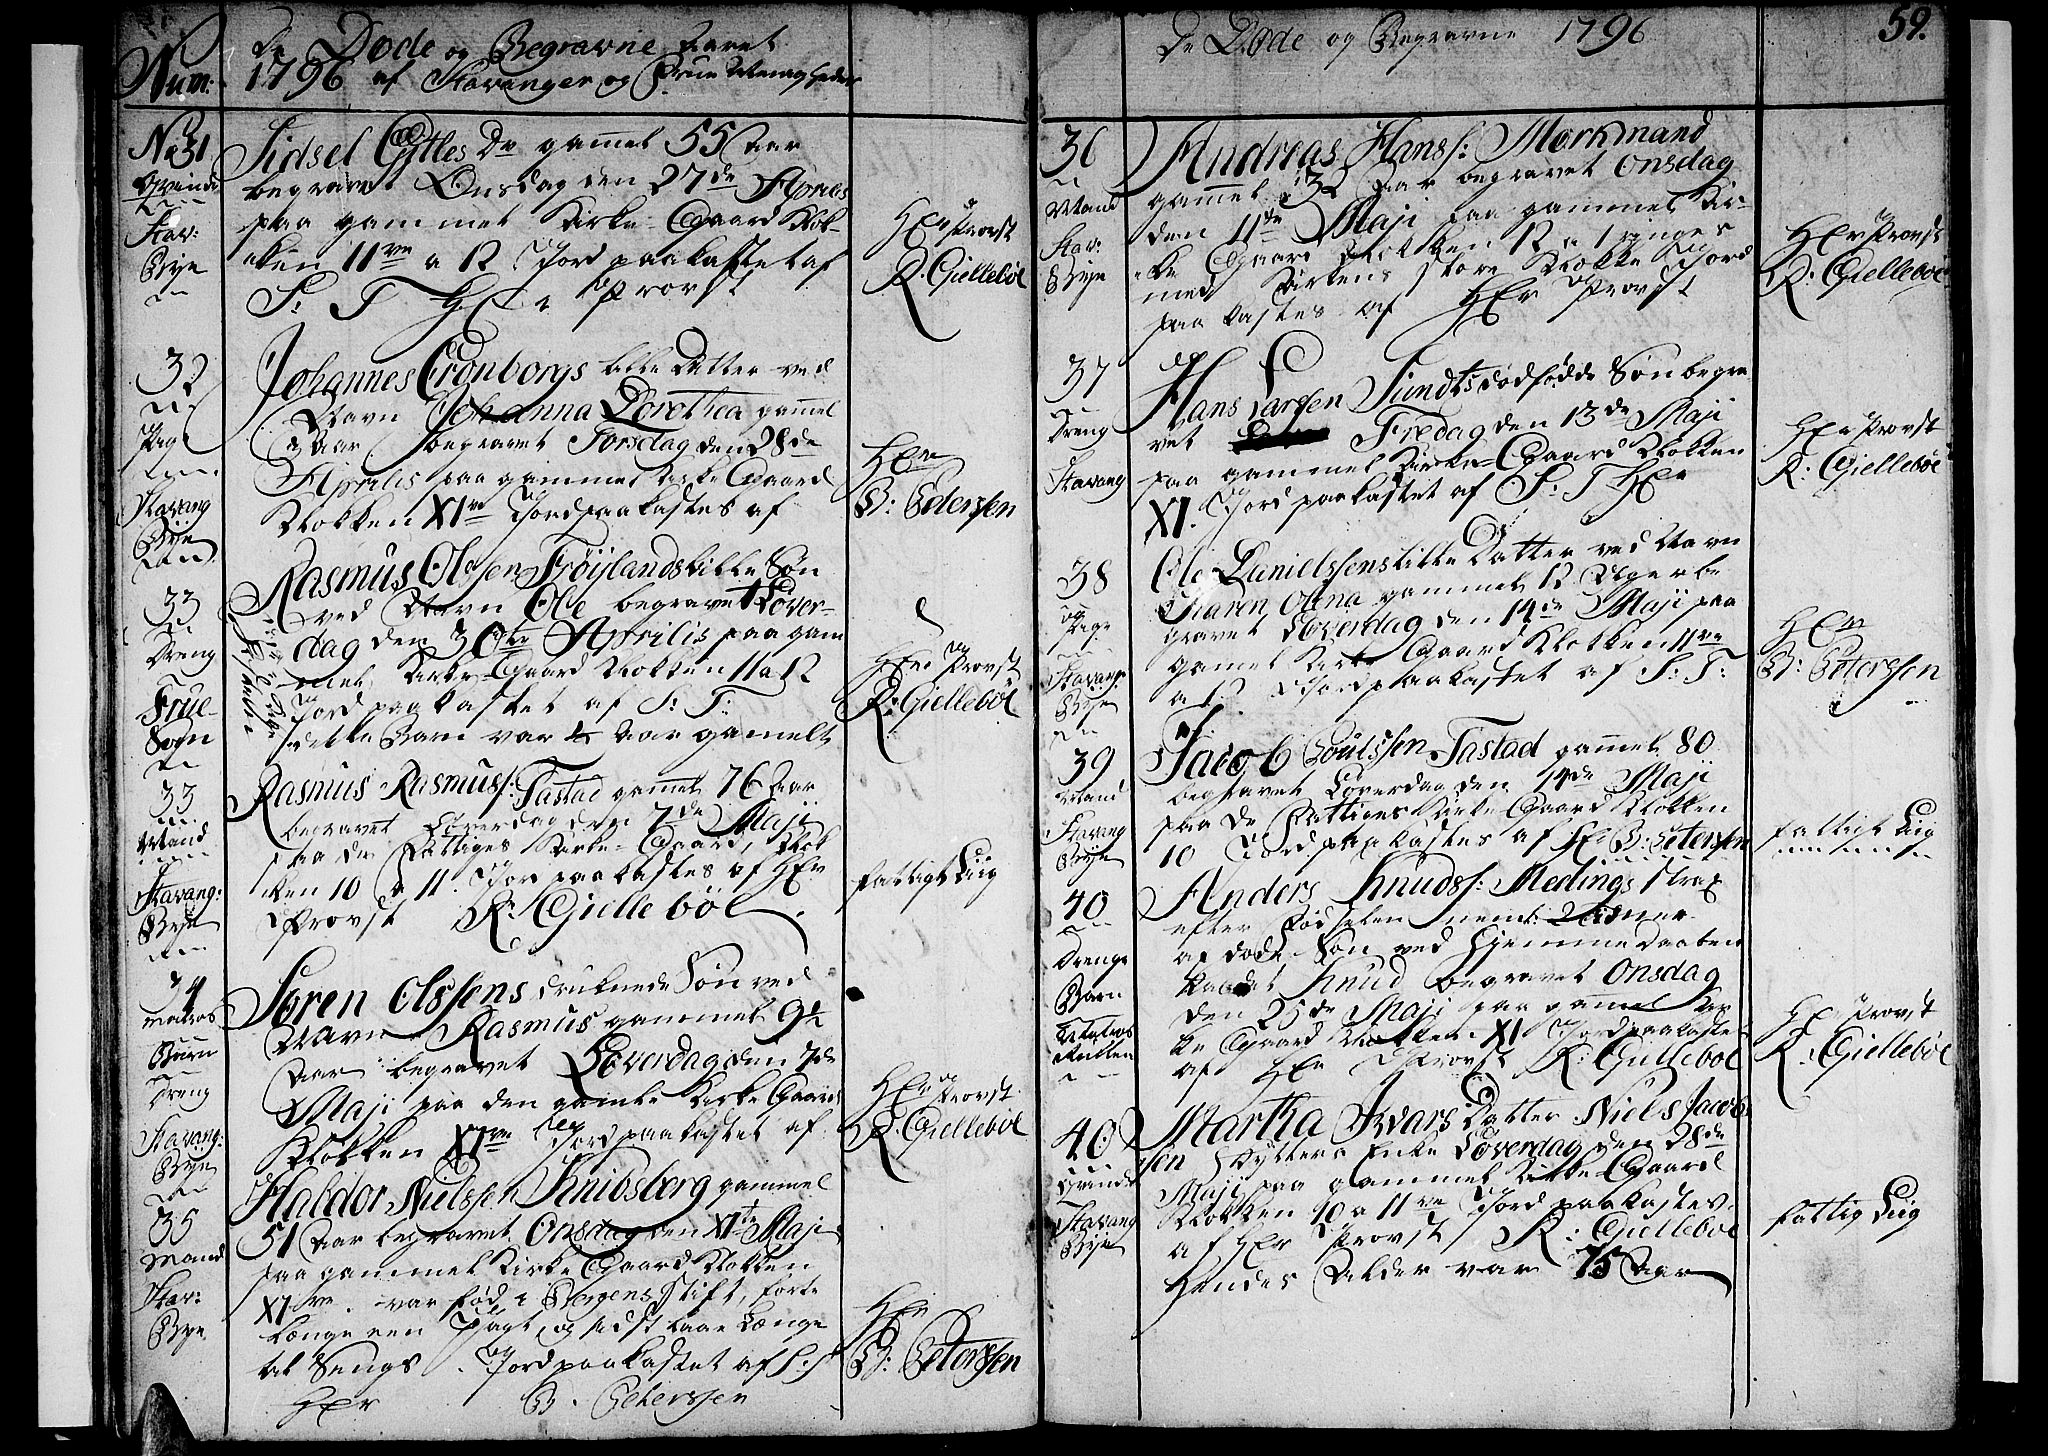 De Døde og Begravne Aaret
Num: 1796 af Stavanger og Frue Menigheder
No 31
Qvinde
Stav:
Bye
Sidsel Estles Dr gammel 55 Aar
begravet Onsdag den 27de Aprilis
paa gammel Kirke-Gaard Klok-
ken 11ve a 12 Jord paakastet af
S: T Her Provst
Her Provst
R: Gielleböl
32
Pige
Stavang
Bye
Johannes Cronborgs lille Datter ved
Navn Johanna Dorothea gammel
Aar begravet Torsdag den 28de
Aprilis paa gammel Kirke Gaard
Klokken XIve Jord paakastes af
Her
B: Petersen
33
Dreng
Frue-
Sogn
Rasmus Olesen Tröjlands lille Søn
ved Navn Ole begravet Løver-
dag den 30te Aprilis paa gam
mel Kirke-Gaard Klokken 11 a 12
Jord paakastet af S: T:
dette Barn var Aar gamelt
Her Provst
R: Gielleböl
33
Mand
Stavang:
Bye
Rasmus Rasmuss: Tastad gammel 76 Aar
begravet Løverdag den 7de Maji
paa de Fattiges Kirke-Gaard, Klok
ken 10 a 11. Jord paakastes af Her
Provst R: Gielleböl
fattigt Liig
34
Matros
Barn
Dreng
Stavang:
Bye
Søren Olssens druknede Søn ved
Navn Rasmus gammel 9½
Aar begravet Løverdag den 7de
Maji paa den gamle Kirke Gaard
Klokken XIve Jord paakastet af
Her Provst
R: Gielleböl
35
Mand
Stav:
Bye
Haldor Nielssen Knibsberg gammel
51 Aar begravet Onsdag den XIte Maji
paa gammel Kirke Gaard Klokken
XIve. var fød i Bergens Stift, førte
længe een Jagt, og sidst laae Længe
til Sengs. Jord paakastet af S: T
Her B. Peterssen
Her
B: Peterssen
De Døde og Begravne 1796
59.
36
Mand
Stav:
Bye
Andreas Hanss: Morkmand
gammel 32 Aar begravet Onsdag
den 11te Maji paa gammel Kir-
ke Gaard Klokken 12 a 1 ringes
med Kirkens store Klokke Jord
paakastes af Her Provst
Her Provst
R: Gielleböl
37
Dreng
Stavang
Hans Larsen Sundts dødfødde Søn begra
vet Fredag den 13de Maji
paa gammel Kirke-Gaard Klokken
XI. Jord paakastet af S: T Her
Her Provst
R: Gielleböl
38
Pige
Stavang:
Bye
Ole Danielssens lille Datter ved Navn
Karen Olina gammel 12 Uger be
gravet Løverdag den 14de Maji paa
gamel Kirke Gaard Klokken 11ve
a 12 Jord paakastet af S: T:
Her
B: Peterssen
39
Mand
Stavang
Bye
Jacob Poulssen Tastad gammel 80
begravet Løverdag den 14de Maji
paa de Fattiges Kirke Gaard Klokken
10 Jord paakastes af Hr B: Peterssen
fattigt Liig
40
Drenge
Barn
Matros
Rullen
Anders Knudss: Melings strax
efter Fødselen neml: 2 Timer
af døde Søn ved Hjemme daaben
kaldet Knud begravet Onsdag
den 25de Maji paa gammel Kir
ke Gaard Klokken XI Jord paakastet
af Her Provst R: Gielleböl
Her Provst
R: Gielleböl
40
Qvinde
Stavang
Bye
Martha Ivars Datter Niels Jacob
sen Skytters Enke Løverdag den 28de
Maji paa gammel Kirke-Gaard
Klokken 10 a 11ve Jord paakastes
af Her Provst R: Gielleböl
Hendes Alder var 75 Aar
fattig Liig